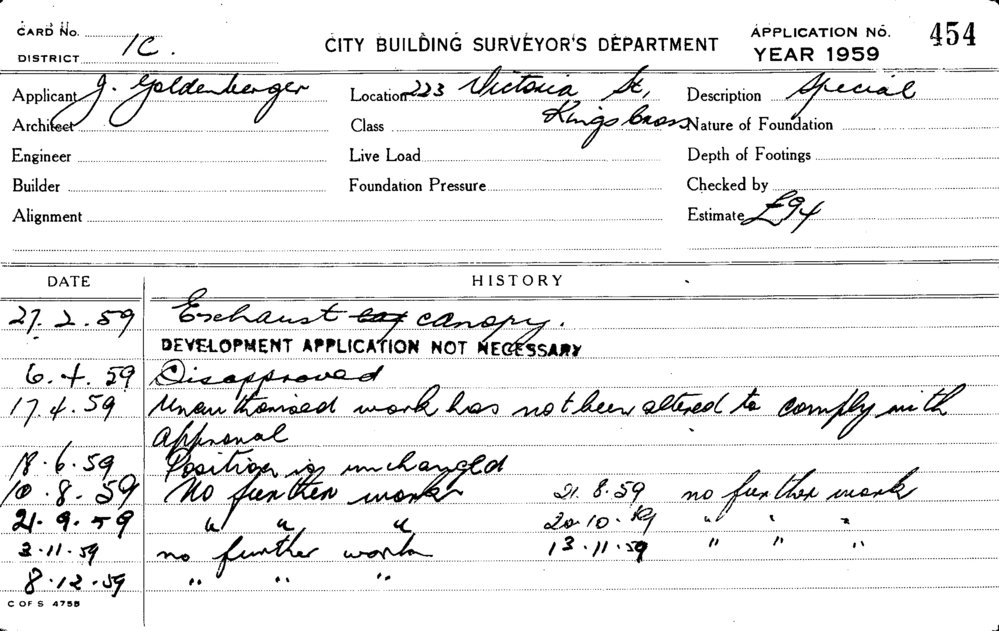 CARD No.
DISTRICT 1C.
CITY BUILDING SURVEYOR'S DEPARTMENT
APPLICATION No. 454
YEAR 1959
Applicant J. Goldenberger Location 223 Victoria St, Description Special
Architect Class Kings Cross Nature of Foundation
Engineer Live Load Depth of Footings
Builder Foundation Pressure Checked by
Alignment Estimate £94
DATE HISTORY
27.2.59 Exhaust canopy.
DEVELOPMENT APPLICATION NOT NECESSARY
6.4.59 Disapproved
17.4.59 Unauthorised work has not been altered to comply with
approval
18.6.59 Position is unchanged
10.8.59 No further work 21.8.59 no further work
21.9.59 " " " 20.10.59 " " "
3.11.59 no further work 13.11.59 " " "
8.12.59 " " "
C OF S 475B